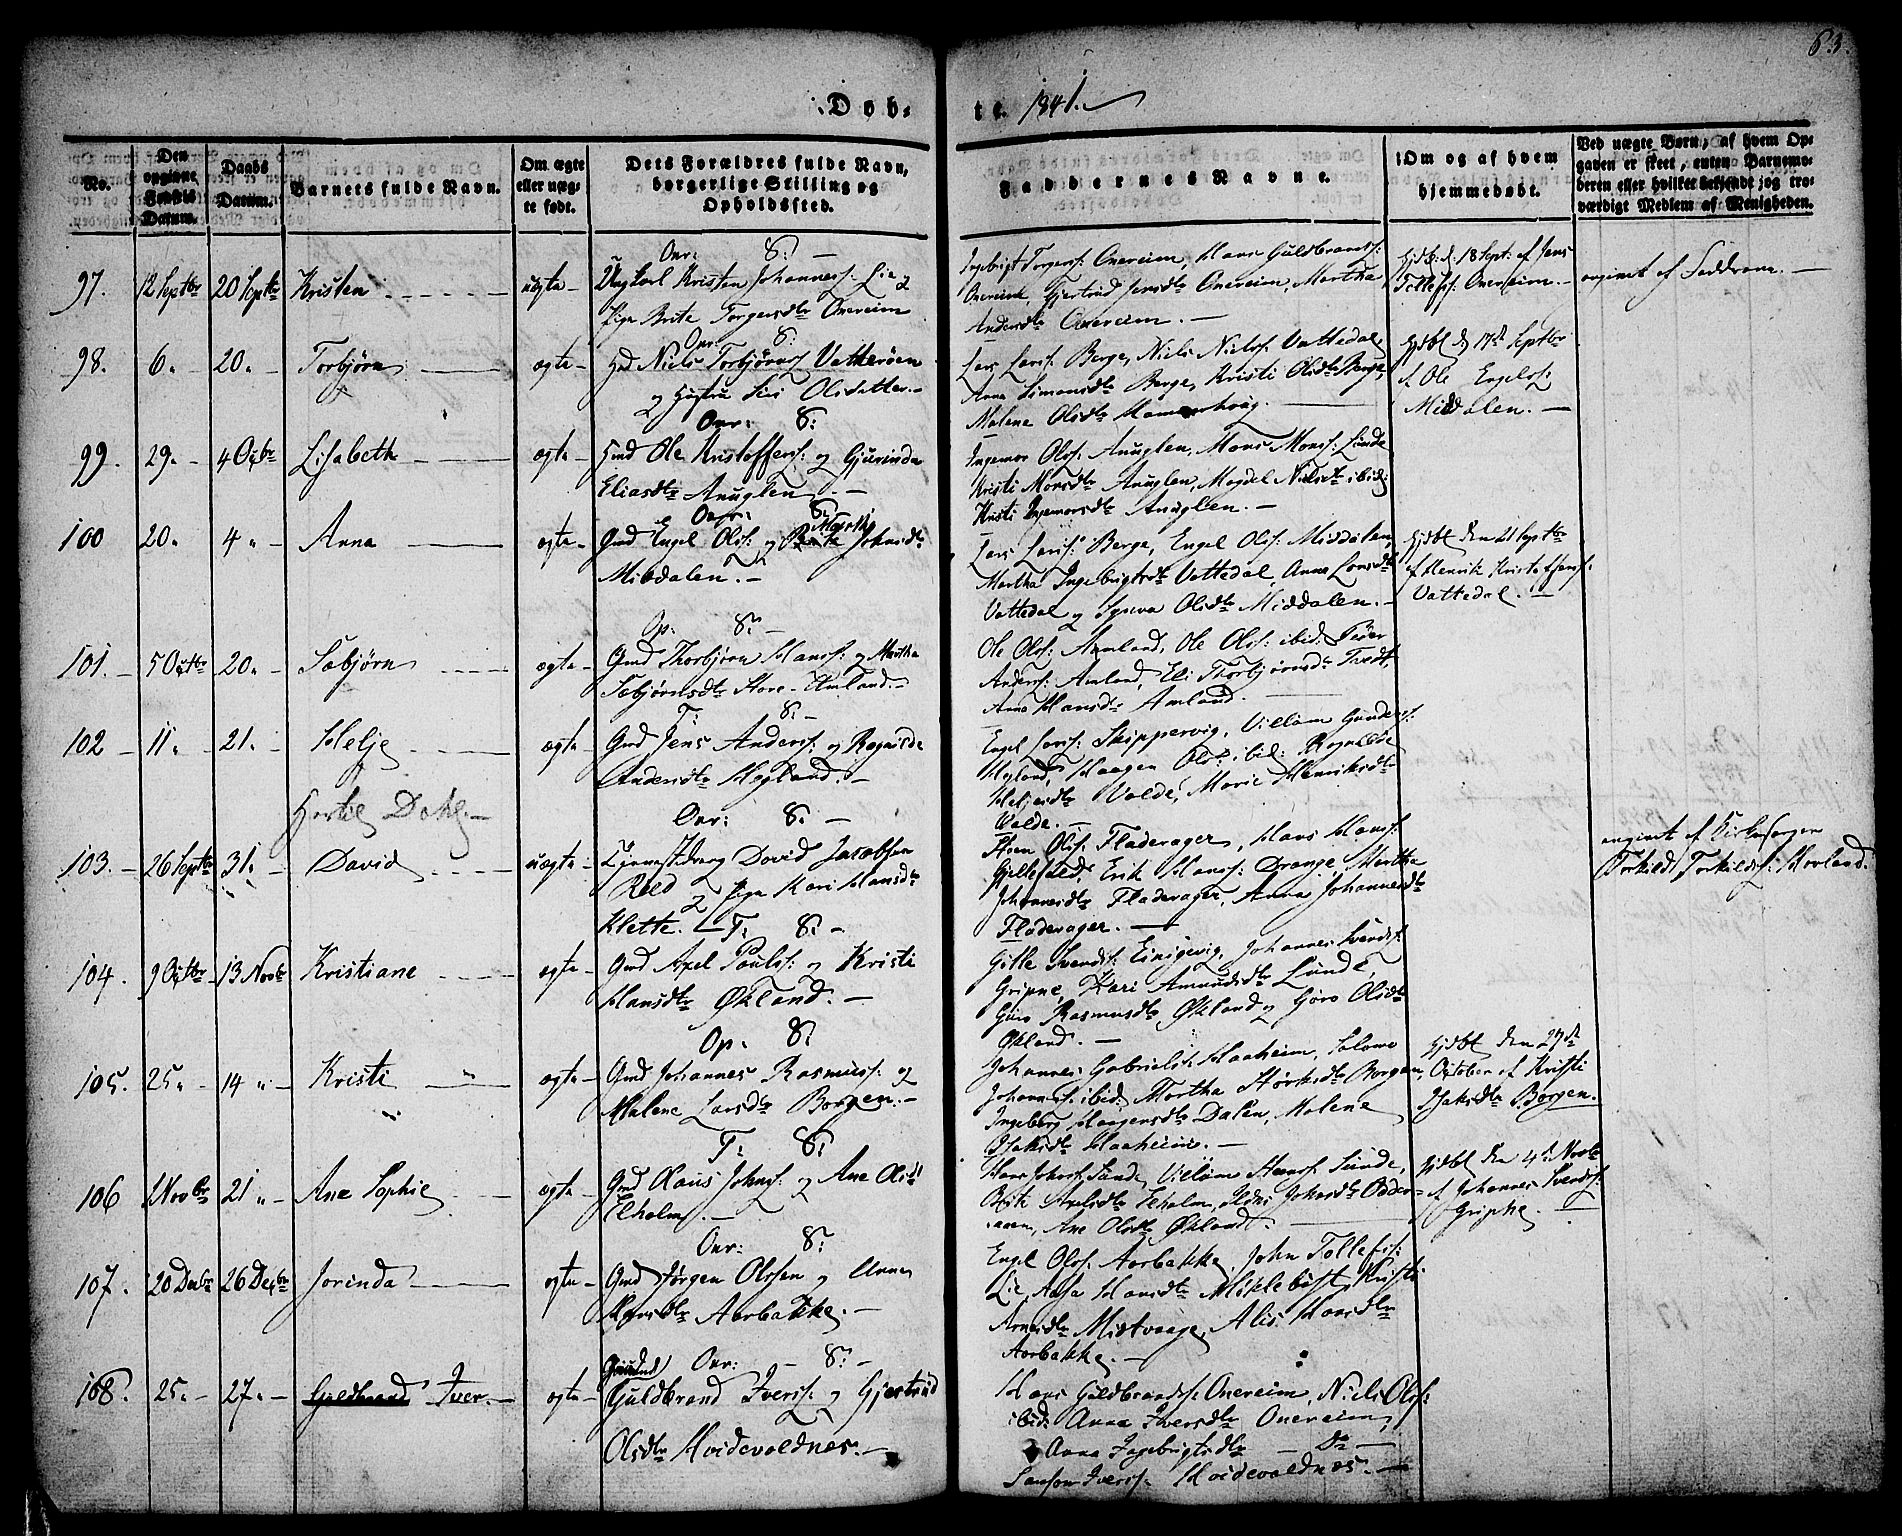 63.
Døb-
te. 1841.
No.
Den
opgivne
Fødsels
Datum.
Daabs
Datum.
Barnets fulde Navn.
Om ægte
eller uæg-
te født.
Dets Forældres fulde Navn,
borgerlige Stilling og
Opholdssted.
Faddernes Navne.
Om og af hvem
hjemmedøbt.
Ved uægte Børn, af hvem Op-
gaven er skeet, enten Barnemo-
deren eller hvilket bekjendt og tro-
værdigt Medlem af Menigheden.
97. 12 Septbr 20 Septbr Kristen uægte
Onr: S:
Ungkarl Kristen Johanness: Lie og
Pige Brite Torgersdtr Onereim
Ingebrigt Torgerss: Onereim, Hans Guldbrandss:
Onereim, Gjertrud Jensdtr Onereim, Martha
Andersdtr Onereim.
Hjdbt d: 18 Sept: af Jens
Tollefss: Onereim.
angivet af Faddrene.
98. 6. 20. Torbjørn ægte
Onr: S:
Gmd Niels Torbjørnss: Vatterøen
og Hustru Siri Olsdatter.
Lars Larss: Berge, Niels Nielss: Vattedal,
Anna Simonsdtr Berge, Kristi Olsdtr Berge,
Malene Olsdtr Hammerhoug.
Hjdbt d 17de Septbr
af Ole Engelss:
Middalen.
99. 29. 4 Octbr Lisabeth ægte
Onr: S:
Gmd Ole Kristofferss: og Gjurinda
Eliasdtr Anuglen.
Ingemar Olss: Anuglen, Mons Monss: Lunde
Kristi Monsdtr Anuglen, Magdel Nielsdtr ibid:
Kristi Ingemarsdtr Anuglen.
100 20. 4 Anna ægte
Onr: S:
Gmd Engel Olss: og Brite Johnsdtr
Middalen.
Lars Larss: Berge, Engel Olss: Middalen,
Martha Ingebrigtsdtr Vattedal, Anna Larsdtr
Vattedal og Synva Olsdtr Middalen.
Hjdbt den 21 Septbr
af Henrik Kristofferss:
Vattedal.
101. 5 Octbr 20. Sæbjørn ægte
Op: S:
Gmd Thorbjørn Hanss: og Martha
Sæbjørnsdtr Store-Amland.
Ole Olss: Amland, Ole Olss: ibid: Peder
Anderss: Amland, Eli Thorbjørnsdtr Tvedt,
Anna Hansdtr Amland.
102 11. 21. Helje ægte
T: S:
Gmd Jens Anderss: og Ragnilde
Andersdtr Hogland.
Engel Larss: Skippervig, Villom Gunderss:
Hogland, Haagen Olss: ibid: Ragnilde
Heljesdtr Valde, Marie Henriksdtr
Valde.
103. 26 Septbr 31. David uægte
Onr: S:
David Jacobsen
og Pige Kari Hansdtr
Klette.
Steen Olss: Fladerager, Hans Hanss:
Erik Hanss: Drange, Martha
Johannesdtr Fladerager, Anna Johannesdtr
Fladerager.
angivet af Kirkesangeren
Torkild Torkildss: Hovland.
104. 9 Octbr 13 Novbr Kristiane ægte
T: S:
Gmd Axel Paulss: og Kristi
Hansdtr Økland.
Gitle Svendss: Einigevig, Johannes Svendss:
Gripne, Kari Amundsdtr Lunde,
Guro Rasmusdtr Økland og Guro Olsdtr
Økland.
105. 25. 14 Kristi ægte
Op: S:
Gmd Johannes Rasmuss: og
Malene Larsdtr Borgen.
Johannes Gabrielss: Haaheim, Salamo
Johannss: ibid: Martha Størksdtr Borgen,
Ingeborg Haagensdtr Dalen, Malene
Isaksdtr Haaheim.
Hjdbt den 27de
October af Kristi
Isaksdtr Borgen.
106 1 Novbr 21 Ane Sophie ægte
T: S:
Gmd Claus Johnss: og Ane Olsdtr
Elholm.
Villom Steenss: Sunde,
Brite Axelsdtr Elholm,
Ane Olsdtr Økland.
Hjdbt den 4de Novbr
af Johannes Svendss:
Gripne.
107. 20 Decbr 26 Decbr Jorinda ægte
Onr: S:
Gmd Jørgen Olssen og Anna
Hansdtr Aarbakke.
Engel Olss: Aarbakke, John Tollefss:
Lie, Aasa Hansdtr Miklebust, Kristi
Arnesdtr Midtvaage, Alis Hansdtr
Aarbakke.
108. 25. 27. Guldbrand Iver ægte
Onr: S:
Guldbrand Iverss: og Gjertrud
Olsdtr Hvidevoldnes.
Hans Guldbrandss: Onereim, Niels Olss:
ibid: Anna Iversdtr Onereim,
Anna Ingebrigtsdtr Do
Samson Iverss: Hvidevoldnes.